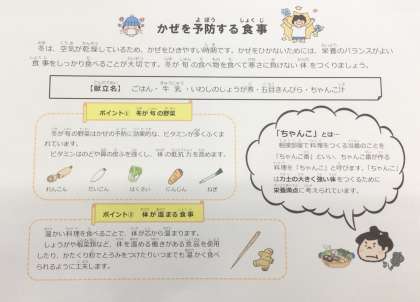 かぜを予防する食事
冬は、空気が乾燥しているため、かぜをひきやすい時期です。かぜをひかないためには、栄養のバランスがよい
食事をしっかり食べることが大切です。冬が旬の食べ物を食べて寒さに負けない体をつくりましょう。
【献立名】 ごはん・牛乳・いわしのしょうが煮・五目きんぴら・ちゃんこ汁
ポイント① 冬が旬の野菜
冬が旬の野菜はかぜの予防に効果的な、ビタミンが多くふくま
れています。
ビタミンはのどや鼻の皮ふを強くし、体の抵抗力を高めます。
れんこん だいこん はくさい にんじん ねぎ
「ちゃんこ」とは…
相撲部屋で料理をつくる当番のことを
「ちゃんこ番」といい、ちゃんこ番が作る
料理を「ちゃんこ」と呼びます。「ちゃんこ」
は力士の大きく強い体をつくるために
栄養満点に考えられています。
ポイント② 体が温まる食事
温かい料理を食べることで、体が芯から温まります。
しょうがや根菜類など、体を温める働きがある食品を使用
したり、かたくり粉でとろみをつけたりいつまでも温かく食べ
られるように工夫します。